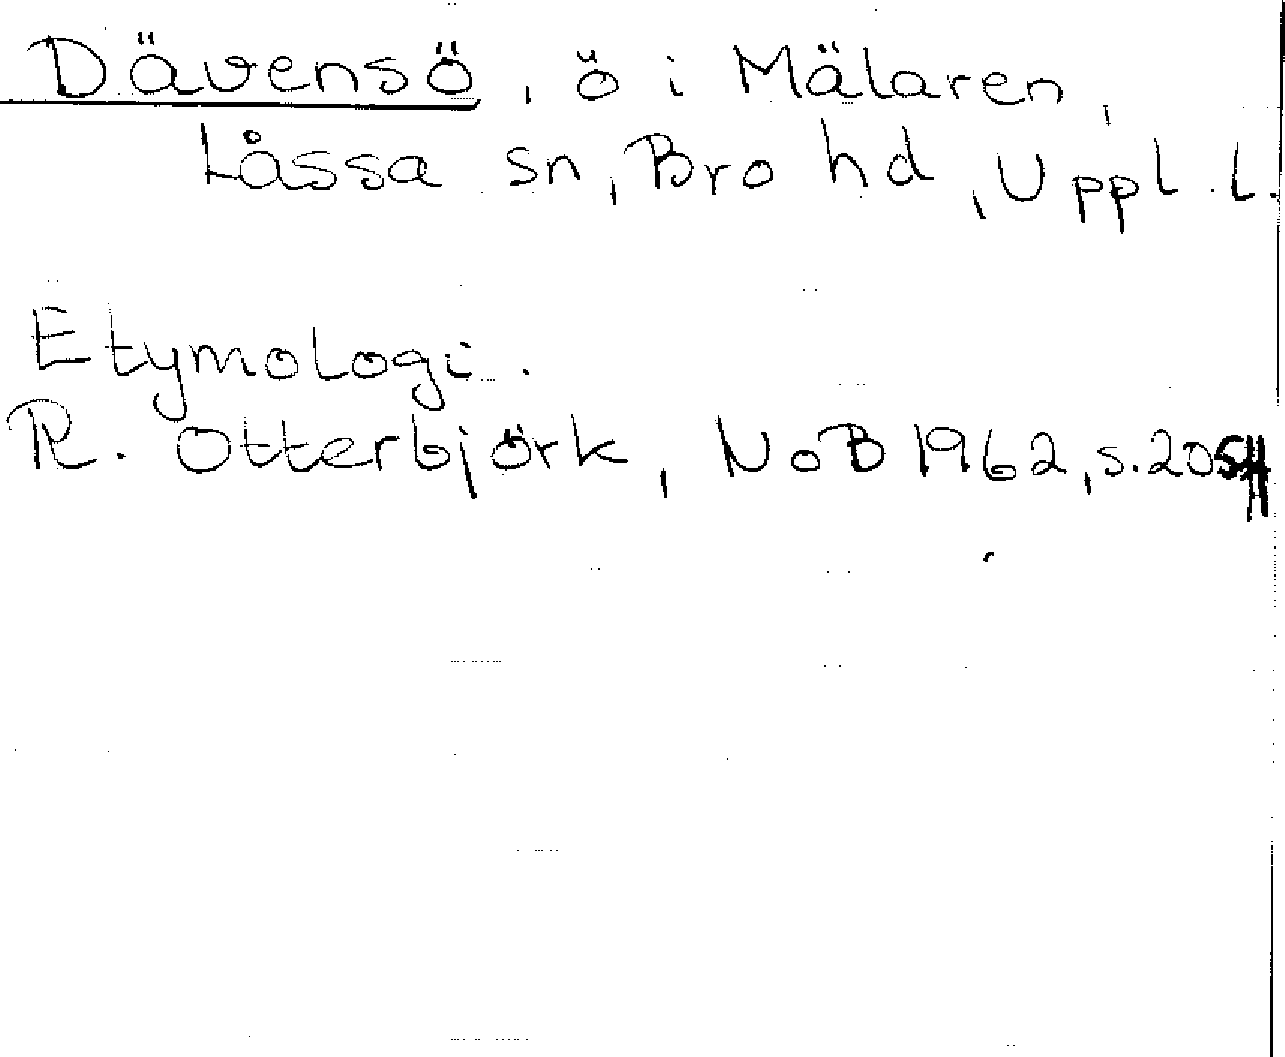 Dävensö, ö i Mälaren,
Låssa sn, Bro hd, Uppl. l.
Etymologi.
R. Otterbjörk, NoB 1962, s. 205ff